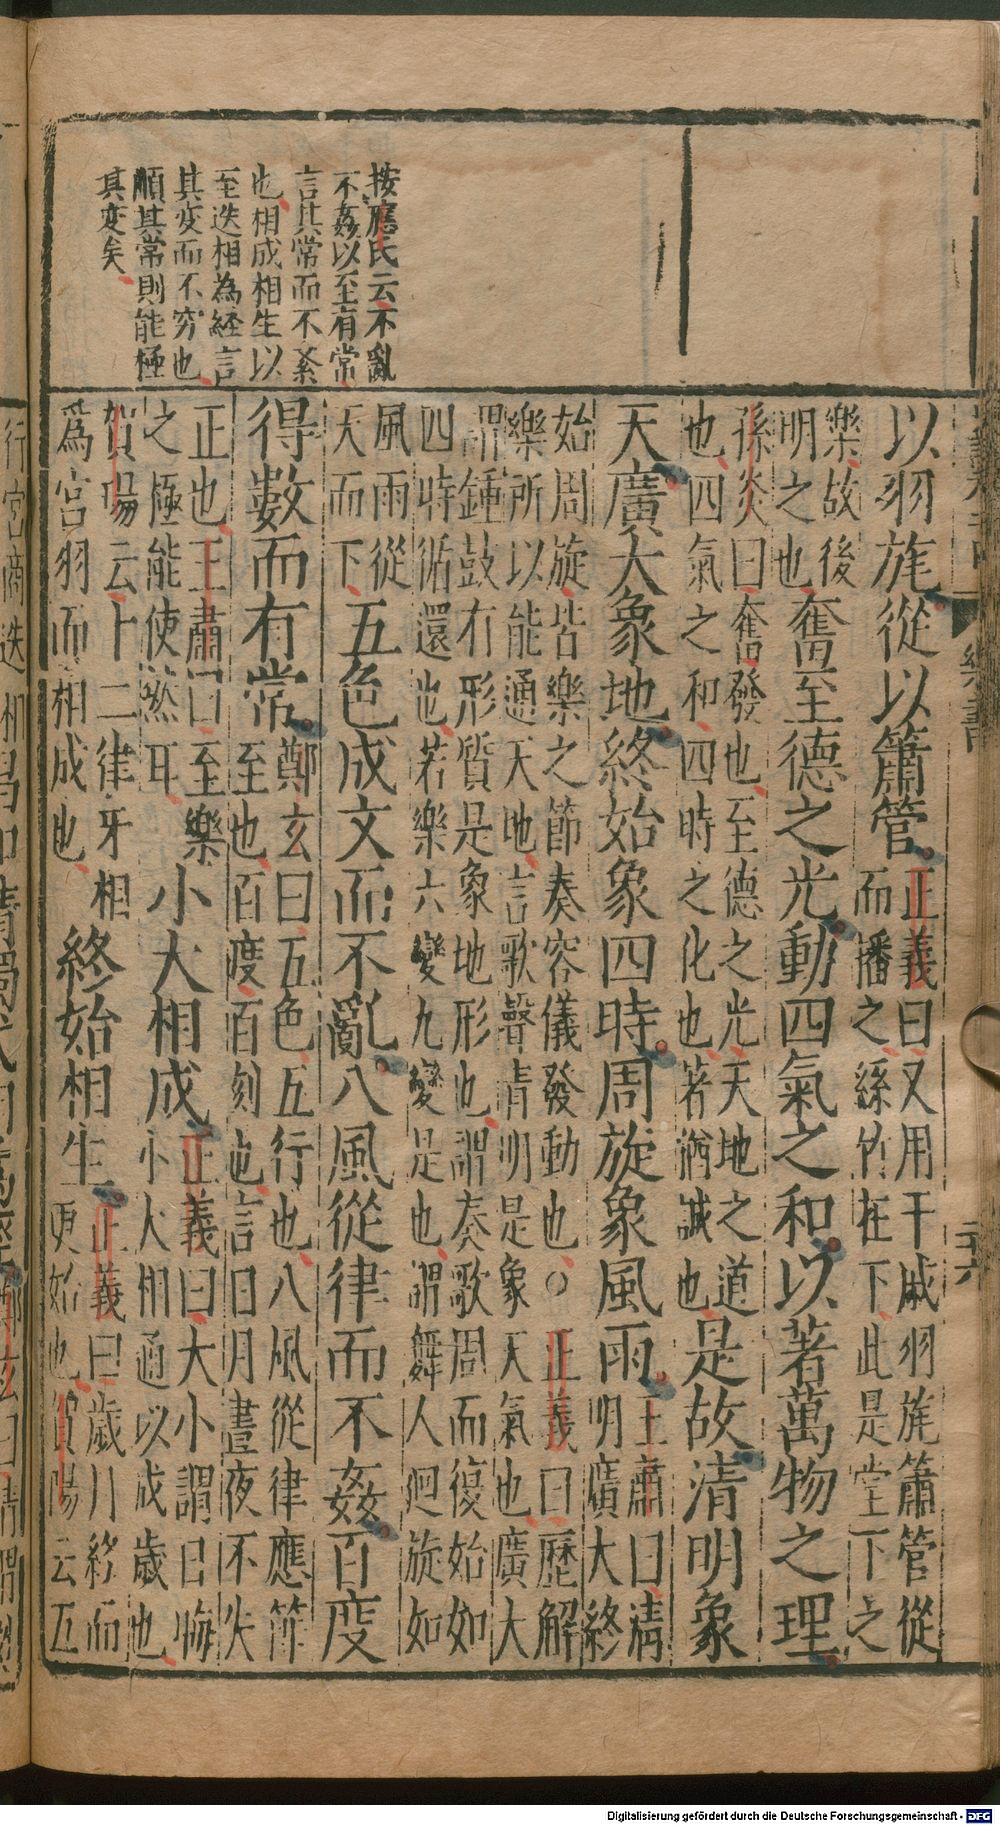 按應氏云不亂
不姦以至有常
言其常而不紊
也相成相生以
至迭相為経言
其変而不窮也
順其常則能極
其変矣
以羽旄從以簫管正義曰又用干戚羽旄簫管從
而播之絲竹在下此是堂下之
樂故後
明之也奮至德之光動四氣之和以著萬物之理
孫炎曰奮發也至德之光天地之道
也四氣之和四時之化也著猶誠也是故清明象
天廣大象地終始象四時周旋象風雨王肅曰清
明廣大終
始周旋皆樂之節奏容儀發動也○正義曰歷解
樂所以能通天地言歌聲清明是象天氣也廣大
謂鍾鼓有形質是象地形也謂奏歌周而復始如
四時循還也若樂六變九變是也謂舞人迴旋如
風雨從
天而下五色成文而不亂八風從律而不姦百度
得數而有常鄭玄曰五色五行也八風從律應節
至也百度百刻也言日月晝夜不失
正也王肅曰至樂
之極能使然耳小大相成正義曰大小謂日晦
小大相通以成歲也
賀瑒云十二律牙相
爲宮羽而相成也終始相生正義曰歲月終而
更始也賀瑒云五
行宮商迭相
樂書
二十六
Digitalisierung gefördert durch die Deutsche Forschungsgemeinschaft - DFG